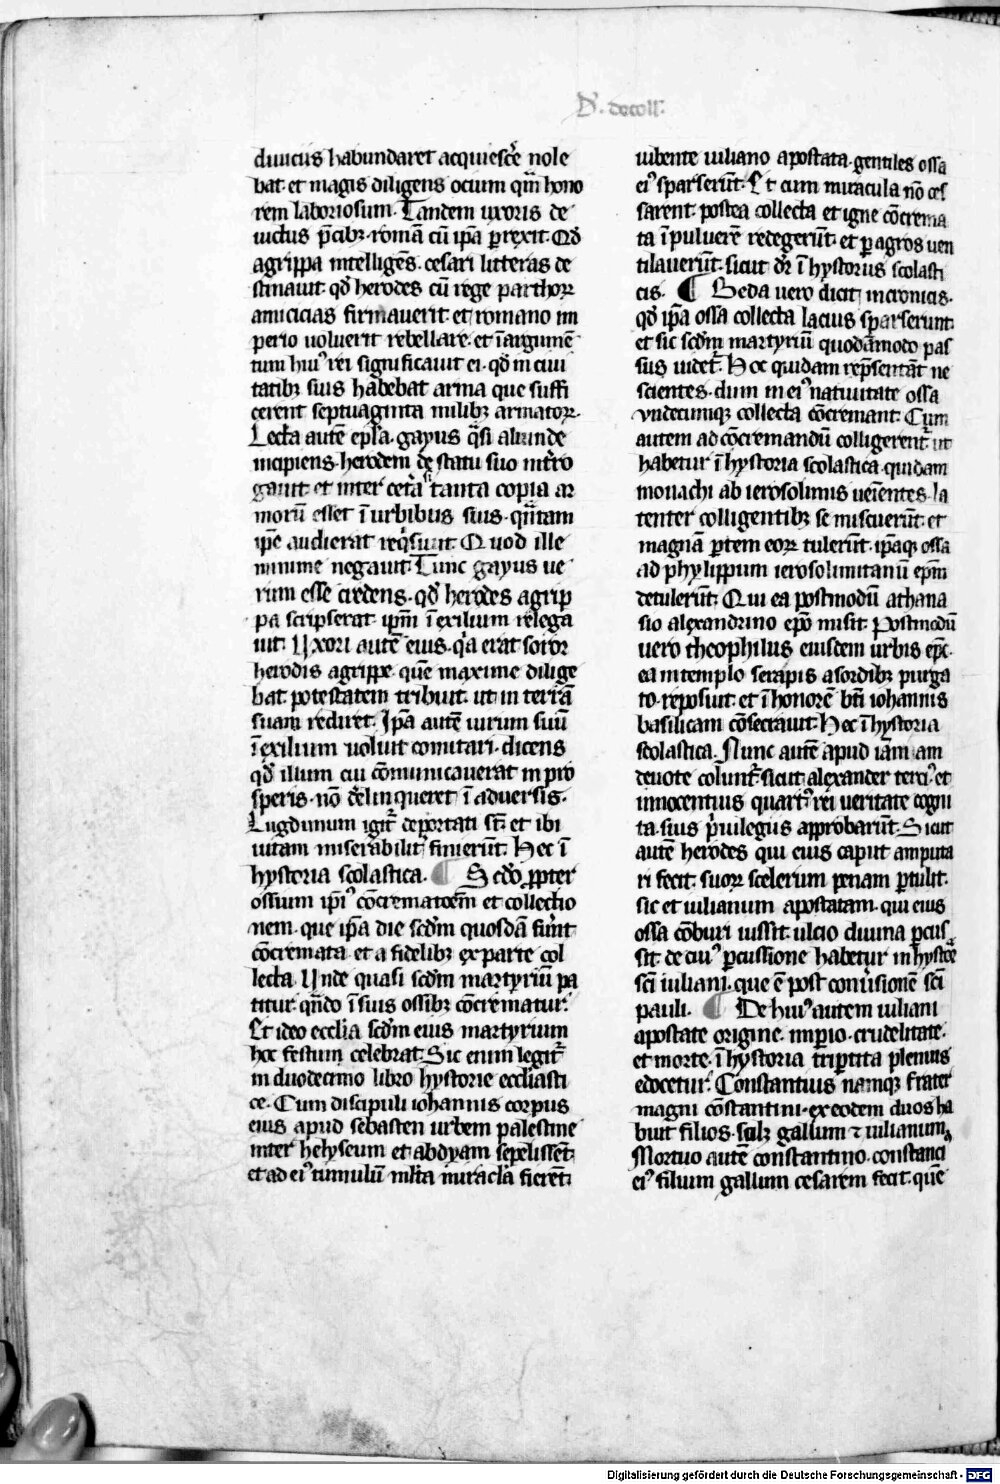 D'. decoll'.
diuicus habundaret acquiesc̄e nole
bat. et magis diligens ocium qͣm hono
rem laboriosum. Tandem uxoris de
uictus p̄cibꝫ. romā cū ip̄a ꝑrexit. Qd̄
agrippa intelligēs. cesari litteras de
stinauit. qd̄ herodes cū rege parthoꝝ
amicicias firmauerit et romano im
perio uoluerit rebellare. et ī argumē
tum huiꝰ rei significauit ei. qd̄ in ciui
tatibꝫ suis habebat arma que suffi
cerent septuaginta milibꝫ armatoꝝ.
Lecta autē ep̄la. gayus qͣsi aliunde
incipiens. herodem de statu suo int̄ro
gauit. et inter cet̄a si tanta copia ar
morū esset ī urbibus suis. qͣntam
ip̄e audierat req̄siuit. Quod ille
minime negauit. Tunc gayus ue
rum esse credens. qd̄ herodes agrip
pa scripserat. ip̄m ī exilium relega
uit. Uxori autē eius. q̄a erat soror
herodis agrippe. quē maxime dilige
bat. potestatem tribuit. ut in terrā
suam rediret. Ip̄a autē uirum suū
ī exilium uoluit comitari. dicens
qd̄ illum cui cōmunicauerat in pro
speris. nō d̄elinqueret ī aduersis.
Lugdunum igit᷑ deportati st̄. et ibi
uitam miserabilit᷑ finierūt. Hec ī
hystoria scolastica. ¶ Scd̄o ꝓpter
ossium ip̄iꝰ cōcrematōem et collectio
nem. que ip̄a die scd̄m quosdā fūnt
cōcremata. et a fidelibꝫ ex parte col
lecta. Unde quasi scd̄m martyriū pa
titur. qn̄do ī suis ossibꝫ cōcrematur.
Et ideo ecclīa scd̄m eius martyrium
hoc festum celebrat. Sic enim legit᷑
in duodecimo libro hystorie ecclīasti
ce. Cum discipuli iohannis corpus
eius apud sebasten urbem palestine
inter helyseum et abdyam sepelissēt.
et ad eiꝰ tumulū ml̄ta miracl̄a fierēt.
iubente iuliano apostata. gentiles ossa
eiꝰ sparserūt. Et cum miracula nō ces
sarent. postea collecta et igne cōcrema
ta ī puluerē redegerūt. et ꝑ agros uen
tilauerūt. sicut dr̄ ī hystoriis scolasti
cis. ¶ Beda uero dicit in cronicis.
qd̄ ip̄a ossa collecta lacius sparserunt.
et sic scd̄m martyriū quodāmodo pas
sus uidet᷑. Hoc quidam rep̄sentāt ne
scientes. dum in eiꝰ natiuitate ossa
vndecumqꝫ collecta cōcremant. Cum
autem ad cōcremandū colligerent᷑. ut
habetur ī hystoria scolastica. quidam
monachi ab ierosolimis ueīentes. la
tenter colligentibꝫ se miscuerūt. et
magnā ꝑtem eoꝝ tulerūt. ip̄aqꝫ ossa
ad phylippum ierosolimitanū ep̄m
detulerūt. Qui ea postmodū athana
sio alexandrino ep̄o misit. Postmodū
uero theophilus eiusdem urbis ep̄c.
ea in templo serapis a sordibꝫ purga
to. reposuit. et ī honorē bt̄i iohannis
basilicam cōsecrauit. Hec ī hystoria
scolastica. Nunc autē apud iāmiam
deuote colunt᷑. sicut alexander terciꝰ. et
innocentius quartꝰ. rei ueritate cogni
ta. suis p̄uilegiis approbarūt. Sicut
autē herodes qui eius caput amputa
ri fecit. suoꝝ scelerum penam ꝑtulit.
sic et iulianum apostatam. qui eius
ossa cōburi iussit. ulcio diuina ꝑcus
sit. de cuiꝰ ꝑcussione habetur in hystōe
sc̄i iuliani. que ē post conūsionē sc̄i
pauli. ¶ De huiꝰ autem iuliani
apostate origine. imꝑio. crudelitate.
et morte. ī hystoria triptita plenius
edocetur. Constantius namqꝫ frater
magni cōstantini. ex eodem duos ha
buit filios. scilꝫ gallum ⁊ iulianum.
Mortuo autē constantino. constanci
eiꝰ filium gallum cesarem fecit. quē
Digitalisierung gefördert durch die Deutsche Forschungsgemeinschaft - DFG